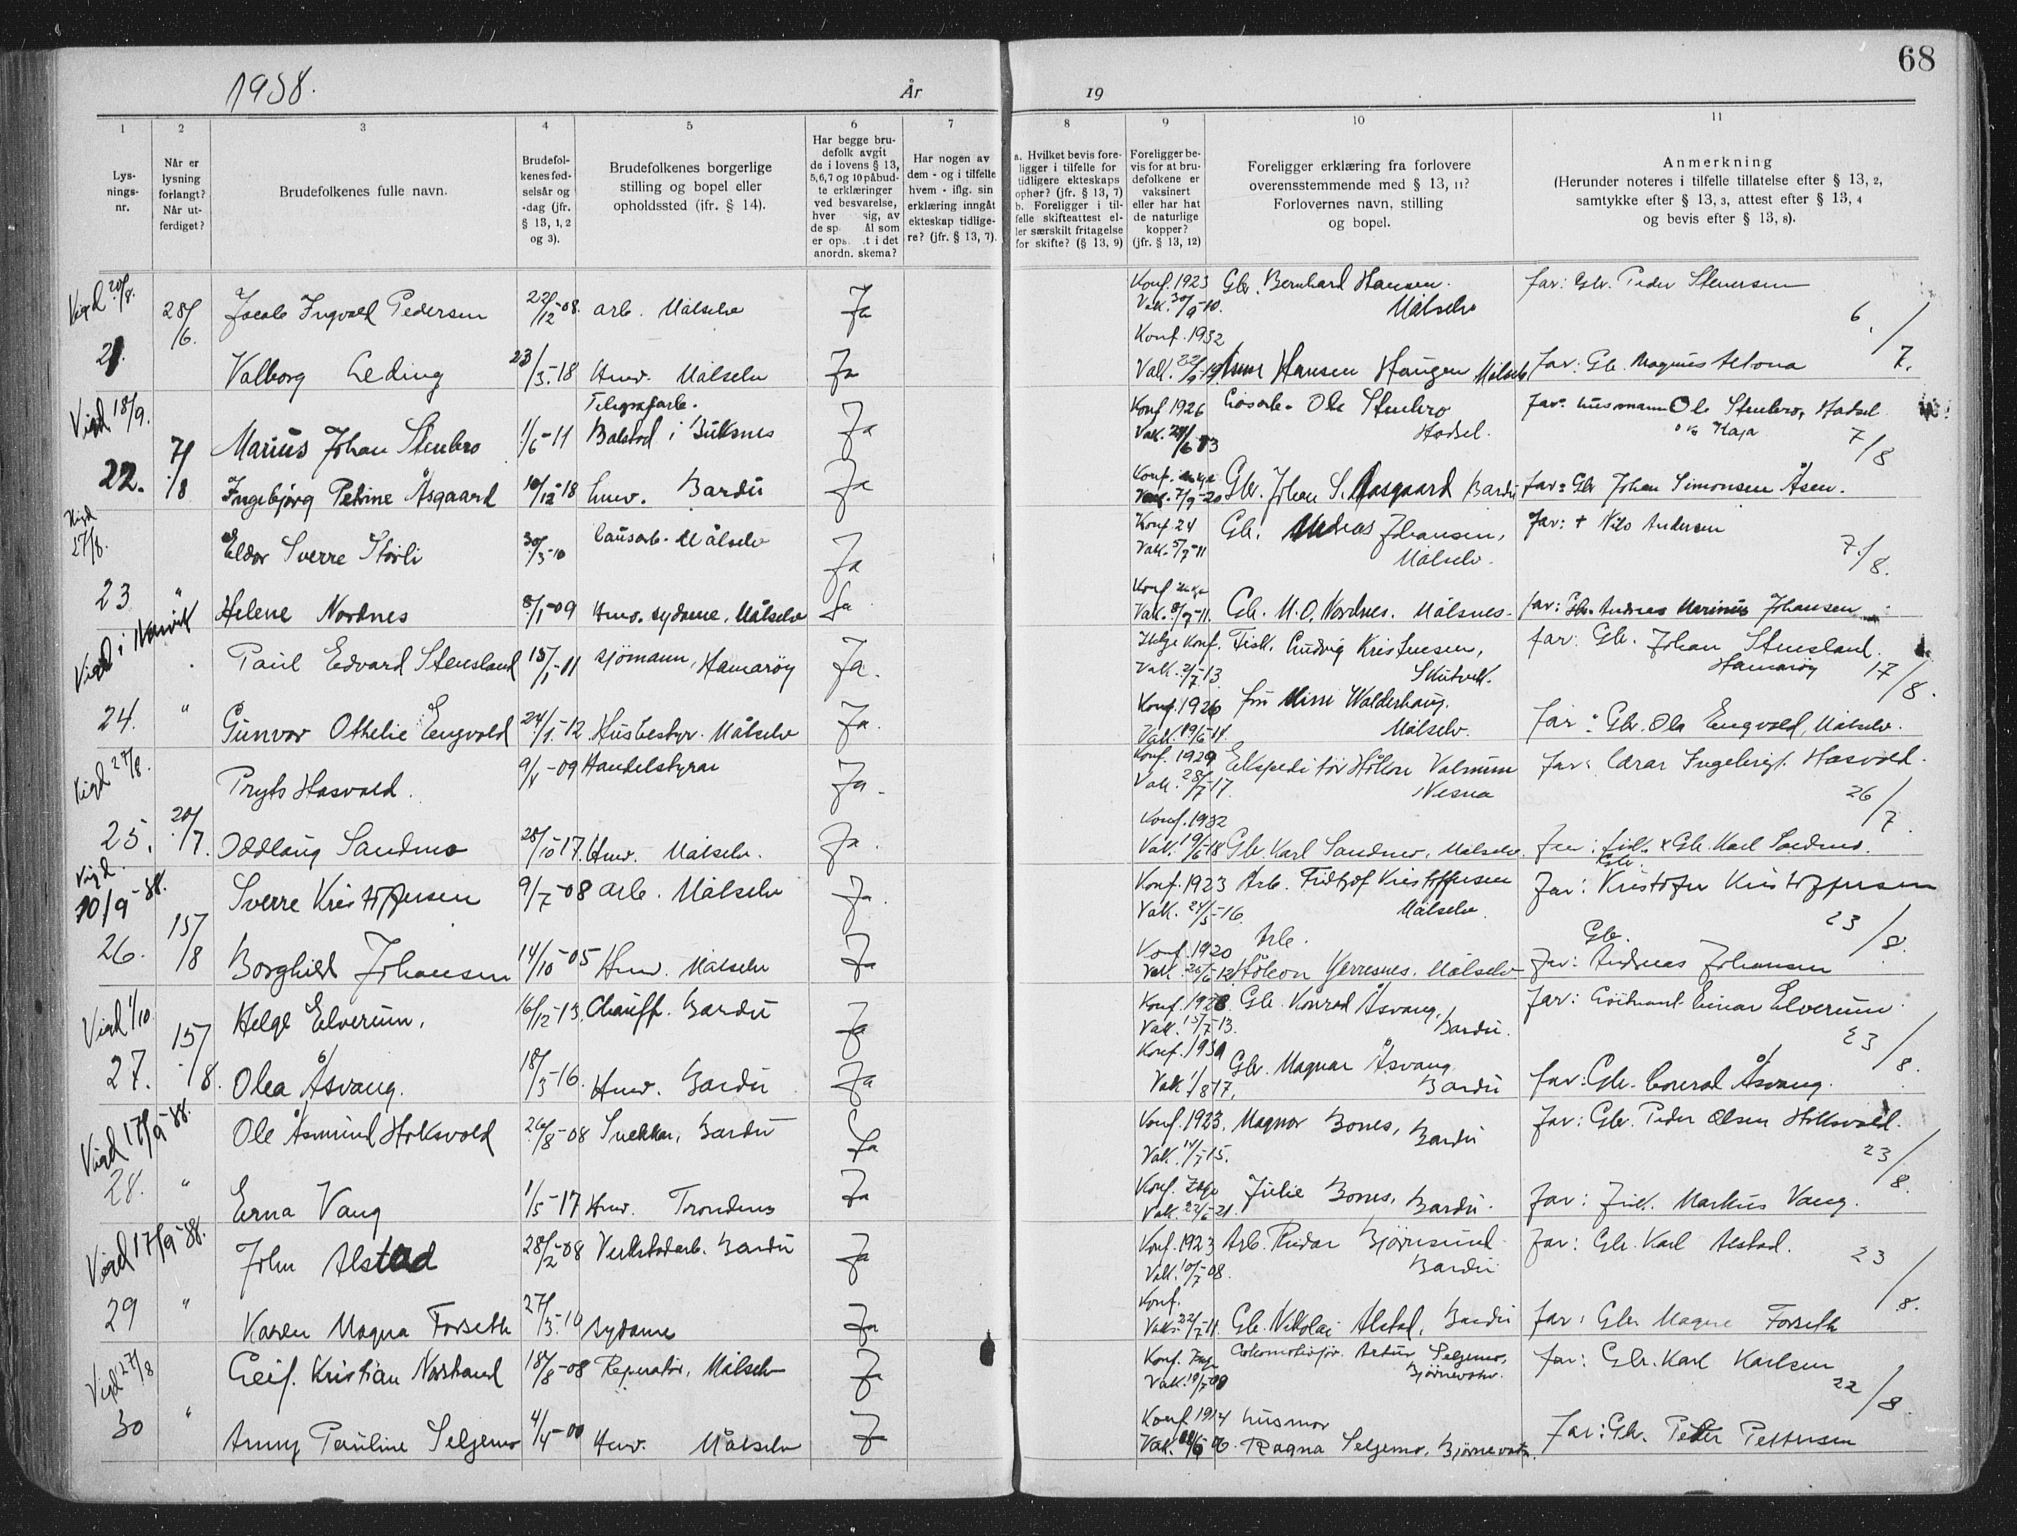 68
1938.
År
19
1
2
3
4
5
6
7
8
9
10
11
Lys-
nings-
nr.
Når er
lysning
forlangt?
Når ut-
ferdiget?
Brudefolkenes fulle navn.
Brudefol-
kenes fød-
selsår og
-dag (jfr.
§ 13, 1, 2
og 3).
Brudefolkenes borgerlige
stilling og bopel eller
opholdssted (jfr. § 14).
Har begge bru-
defolk avgit
de i lovens § 13,
5,6,7 og 10 påbud-
te erklæringer
ved besvarelse,
hver sig, av
de sp ål som
er ops t i det
anordn. skema?
Har nogen av
dem - og i tilfelle
hvem - iflg. sin
erklæring inngåt
ekteskap tidlige-
re? (jfr. § 13, 7).
a. Hvilket bevis fore-
ligger i tilfelle for
tidligere ekteskaps
ophør? (jfr. § 13, 7)
b. Foreligger i til-
felle skifteattest el-
ler særskilt fritagelse
for skifte? (§ 13, 9)
Foreligger be-
vis for at bru-
defolkene er
vaksinert
eller har hat
de naturlige
kopper?
(jfr. § 13, 12)
Foreligger erklæring fra forlovere
overensstemmende med § 13, 11?
Forlovernes navn, stilling
og bopel.
Anmerkning
(Herunder noteres i tilfelle tillatelse efter § 13, 2,
samtykke efter § 13, 3, attest efter § 13, 4
og bevis efter § 13, 8).
Vigd 20/8. 28/6. Jacob Ingvald Pedersen 22/12-08. arb. Målselv Ja Konf. 1923 Vak. 30/9-10. Gbr. Bernhard Hansen. Målselv far: Gbr. Peder Stenersen 6./7.
21. Valborg Leding 23/3-18 Hmv. Målselv Ja Konf. 1932 Vak. Hansen Haugen Målselv far: Gb. Magnus Altona
Vigd 18/9. 22. 7/8 Marius Johan Stenbro 1/6-11 Telegrafarb. Balstad i Buksnes Ja Konf 1926 Vak. Ole Stenbro Hadsel. far: husmann Ole Stenbro, Hadsel og Kaja 7/8
Ingebjørg Petrine Åsgaard 10/12-18 hmv. Bardu Ja Konf. Vak. 7/9-20 Gbr. Johan S. Aasgaard Bardu far: Gbr Johan Simonsen Åsen.
Vigd 27/8. Eldor Sverre Storli 30/3-10 Causarb. Målselv Ja Konf 24 Vak. 5/7-11 Gb. Andreas Johansen, Målselv. far: + Nils Andersen 7./8.
23 " Helene Nordnes 8/1-09 Hmv. sydame, Målselv Ja Konf. Vak. 8/7-11. Gb. M. O. Nordnes. Målsnes. far: Gbr. Andreas Marinus Johansen
Vigd i Narvik Paul Edvard Stensland 15/1-11 sjømann, Hamarøy Ja. Helge Konf. Vak. 2/7-13 Fisk. Ludvig Kristensen, Skutvik. far: Gb. Johan Stensland. Hamarøy 17/8.
24. " Gunvor Othelie Engvold 24/1-12 Husbestyr. Målselv Ja. Konf. 1926 Vak. 19/6-14 fru Walderhaug. Målselv. far: Gbr. Ola Engvold, Målselv.
Vigd 27/8. Pryts Hasvold. 9/8-09 Handelstyrar Ja. Konf. 1929 Vak. 28/7-17. Ekspeditør Håkon Valmum Nesna far: Lærar Ingebrigt Hasvold. 26/7
25. 20/7. Oddlaug Sandmo 28/10-17. Hmv. Målselv. Ja. Konf. 1932 Vak. 19/6-18 Gbr. Karl Sandmo, Målselv. far: Gb. Karl Sandmo.
Vigd. 10/9-38. Sverre Kristoffersen 9/7-08 arb. Målselv Ja. Konf. 1923 Vak. 24/5-16. Arb. Fridtjof Kristoffersen Målselv. far: Gbr. Kristofer Kristoffersen 23/8.
26. 15/8 Borghild Johansen 14/10-05 Hmv. Målselv Ja Konf. 1920 Vak. 25/6-12. Arb. Håkon Målselv far: Gbr. Andreas Johansen
Vigd 1/10 Helge Elverum. 16/12-13. Chauff. Bardu Ja Konf. 1928 Vak. 15/7-13. Gb. Konrad Åsvang, Bardu. far: Einar Elverum. 23/8.
27. 15/8. Olea Åsvang. 18/3-16. Hmv. Bardu Ja Konf. 1931 Vak. 1/8 17. Gbr. Magnar Åsvang Bardu far: Gbr. Conrad Åsvang.
Vigd 17/9-38. Ole Åsmund Hoksvold 26/8-08 Snekker, Bardu Ja Konf. 1923. Vak. 14/7-15. Magnor Bones, Bardu far: Gbr. Peder Olsen Hoksvold. 23/8.
28. " Erna Vang 1/5-17 Hmv. Trondenes Ja Konf. Vak. 22/6-21. Julie Bones, Bardu. far: Markus Vang.
Vigd 17/9-38. John Alstad 28/2-08 Verkstedarb. Bardu Ja Konf. 1923 Vak. 10/7-08. Arb. Reidar Bjørnsund Bardu far: Gbr. Karl Alstad. 23/8.
29 " Karen Magna Forseth 27/3-10 sydame Ja Konf. Vak. 22/7-11. Gb. Nikolai Alstad, Bardu far: Gbr Magne Forseth
Vigd 27/8 Leif. Kristian Norstrand 18/8-08 Reperatør, Målselv Ja Konf. Vak. Lokomotivfør. Artur Seljemo, Bjørnevatn. far: Gbr. Karl Karlsen 22/8.
30 " Anny Pauline Seljemo 4/4-00 Hmv. Målselv Ja Konf 1914 Vak. husmor Ragna Seljemo, Bjørnevatn. far: Gbr. Peder Pettersen